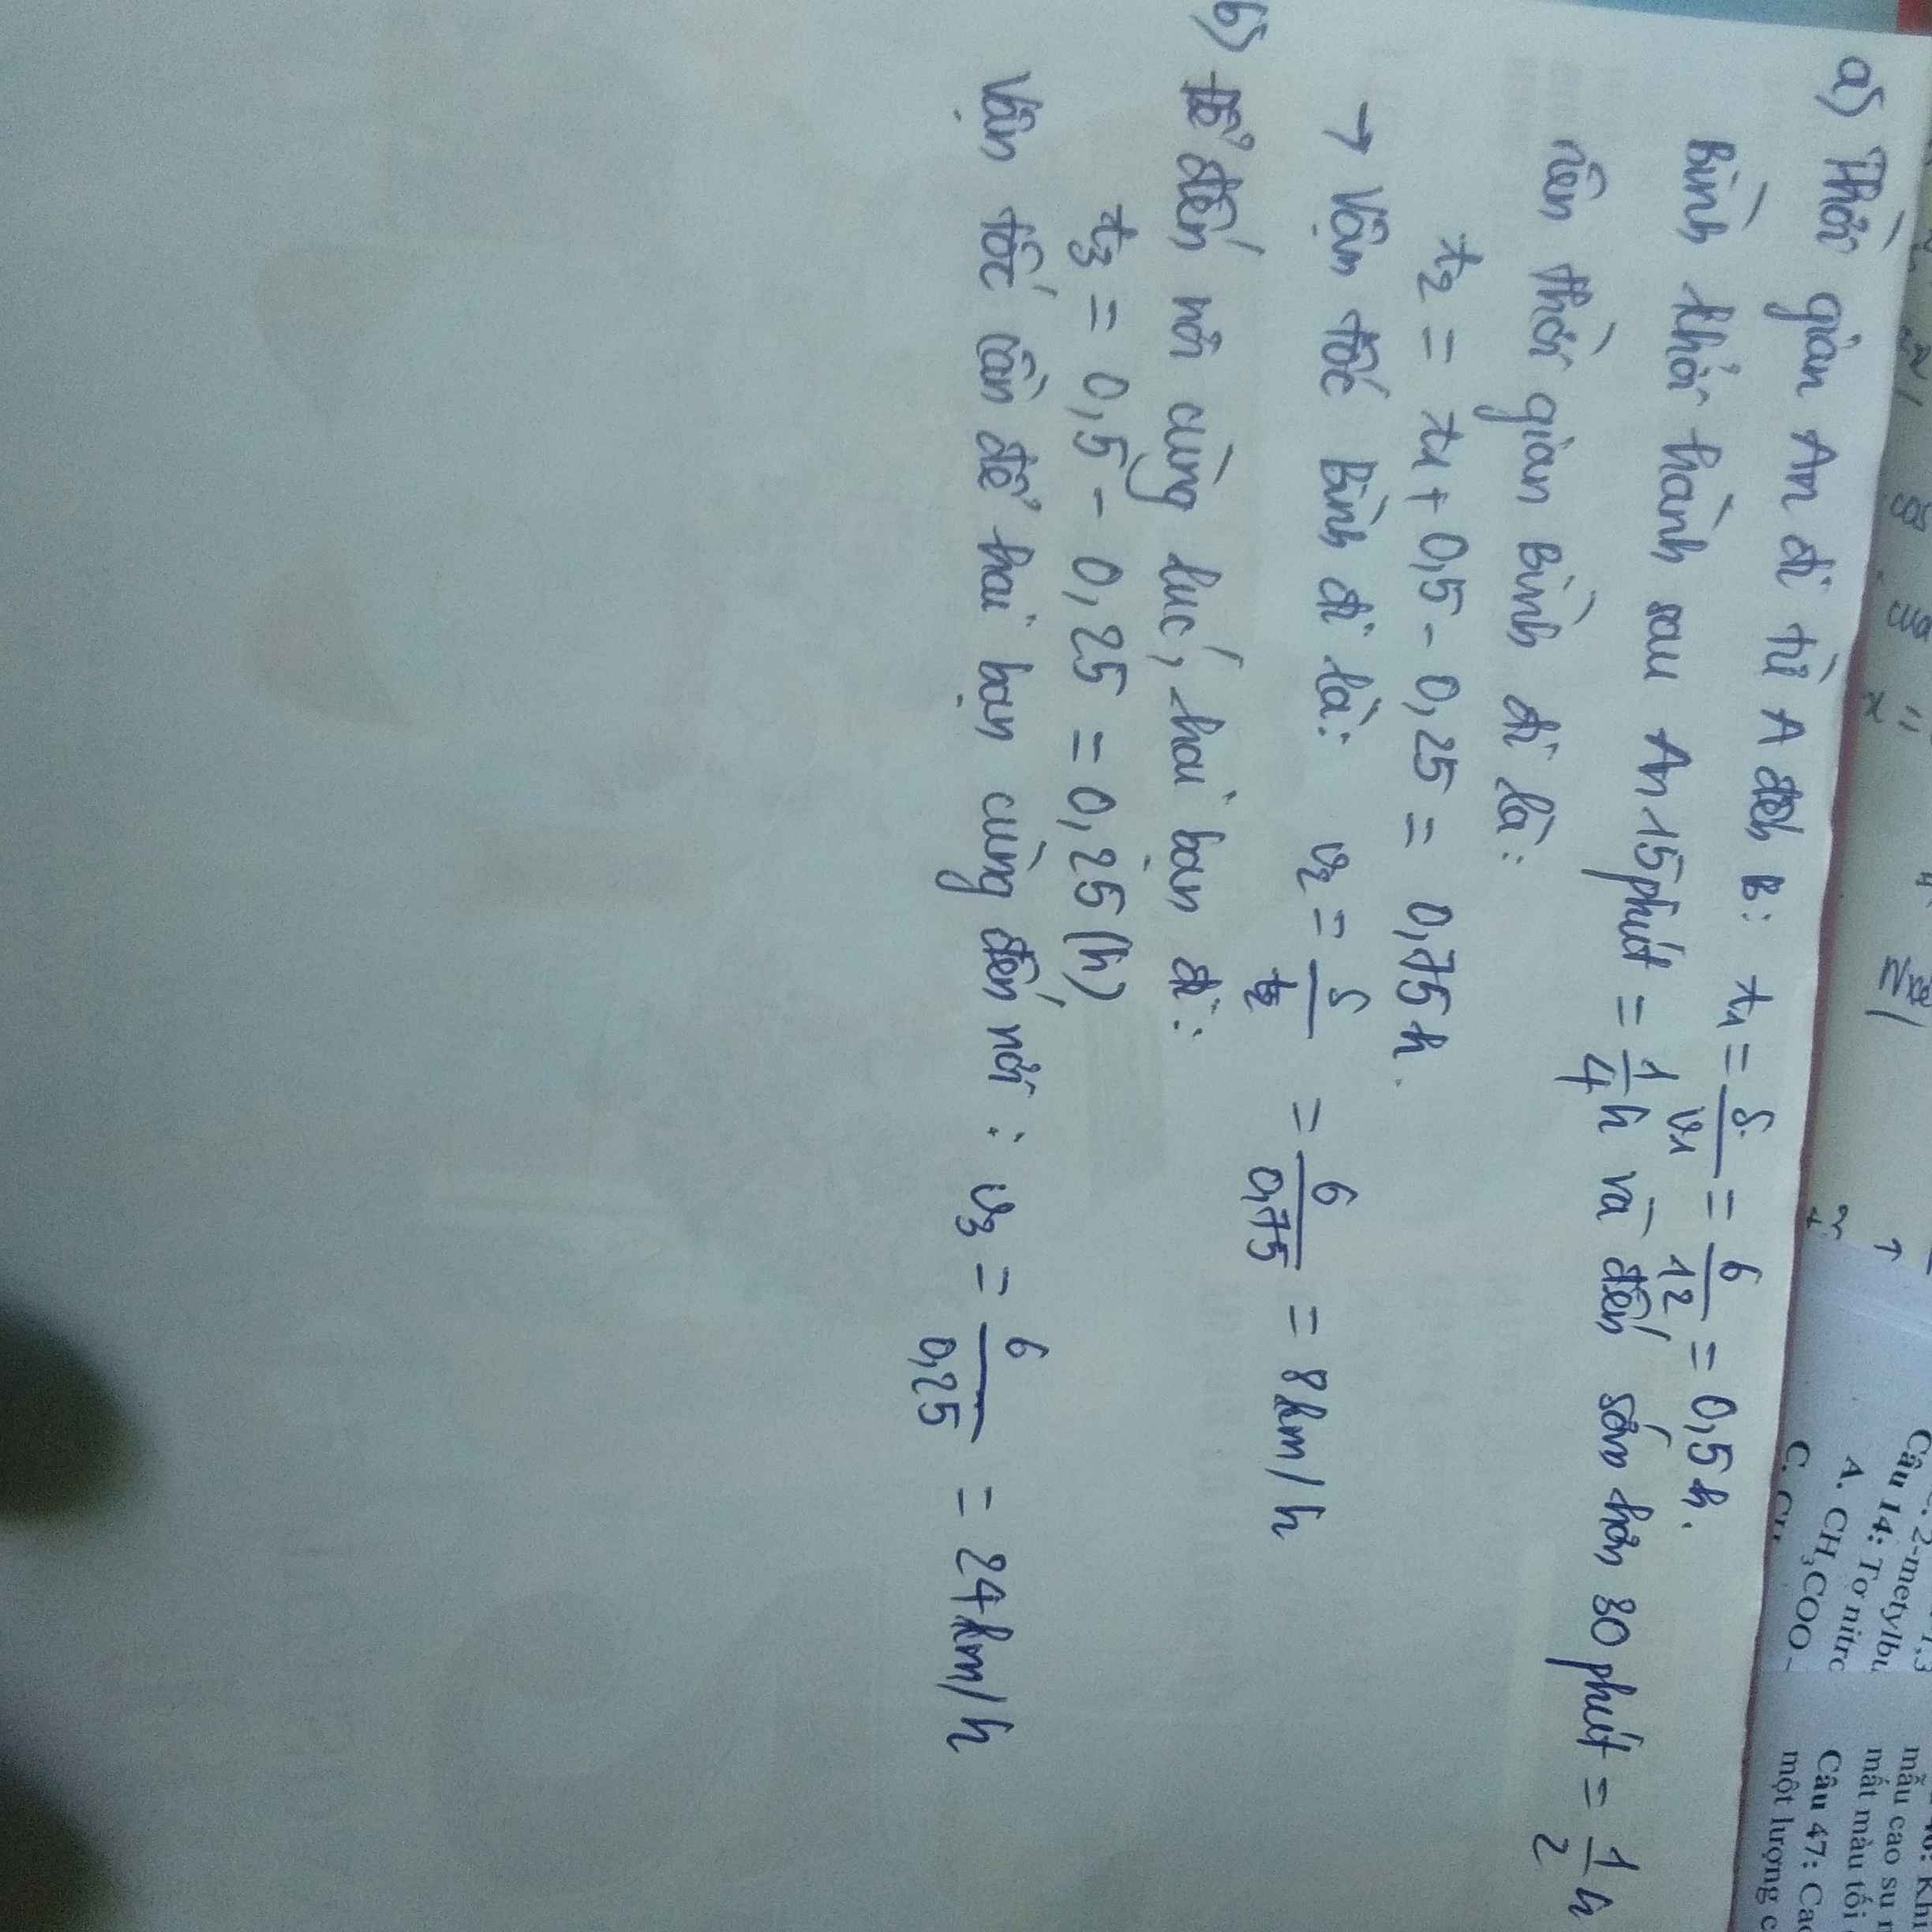 a) Thời gian An đi từ A đến B: t₁ = S/v₁ = 6/12 = 0,5h.
Bình khởi hành sau An 15 phút = 1/4 h và đến sớm hơn 30 phút = 1/2 h
nên thời gian Bình đi là:
t₂ = t₁ + 0,5 - 0,25 = 0,75h.
→ Vận tốc Bình đi là: v₂ = S/t₂ = 6/0,75 = 8km/h
b) để đến nơi cùng lúc, hai bạn đi:
t₃ = 0,5 - 0,25 = 0,25(h)
Vận tốc cần để hai bạn cùng đến nơi: v₃ = 6/0,25 = 24km/h
Câu 14: Tơ nitr
A. CH₃COO-
mẫu cao su
mất màu tối
Câu 47: Ca
một lượng c